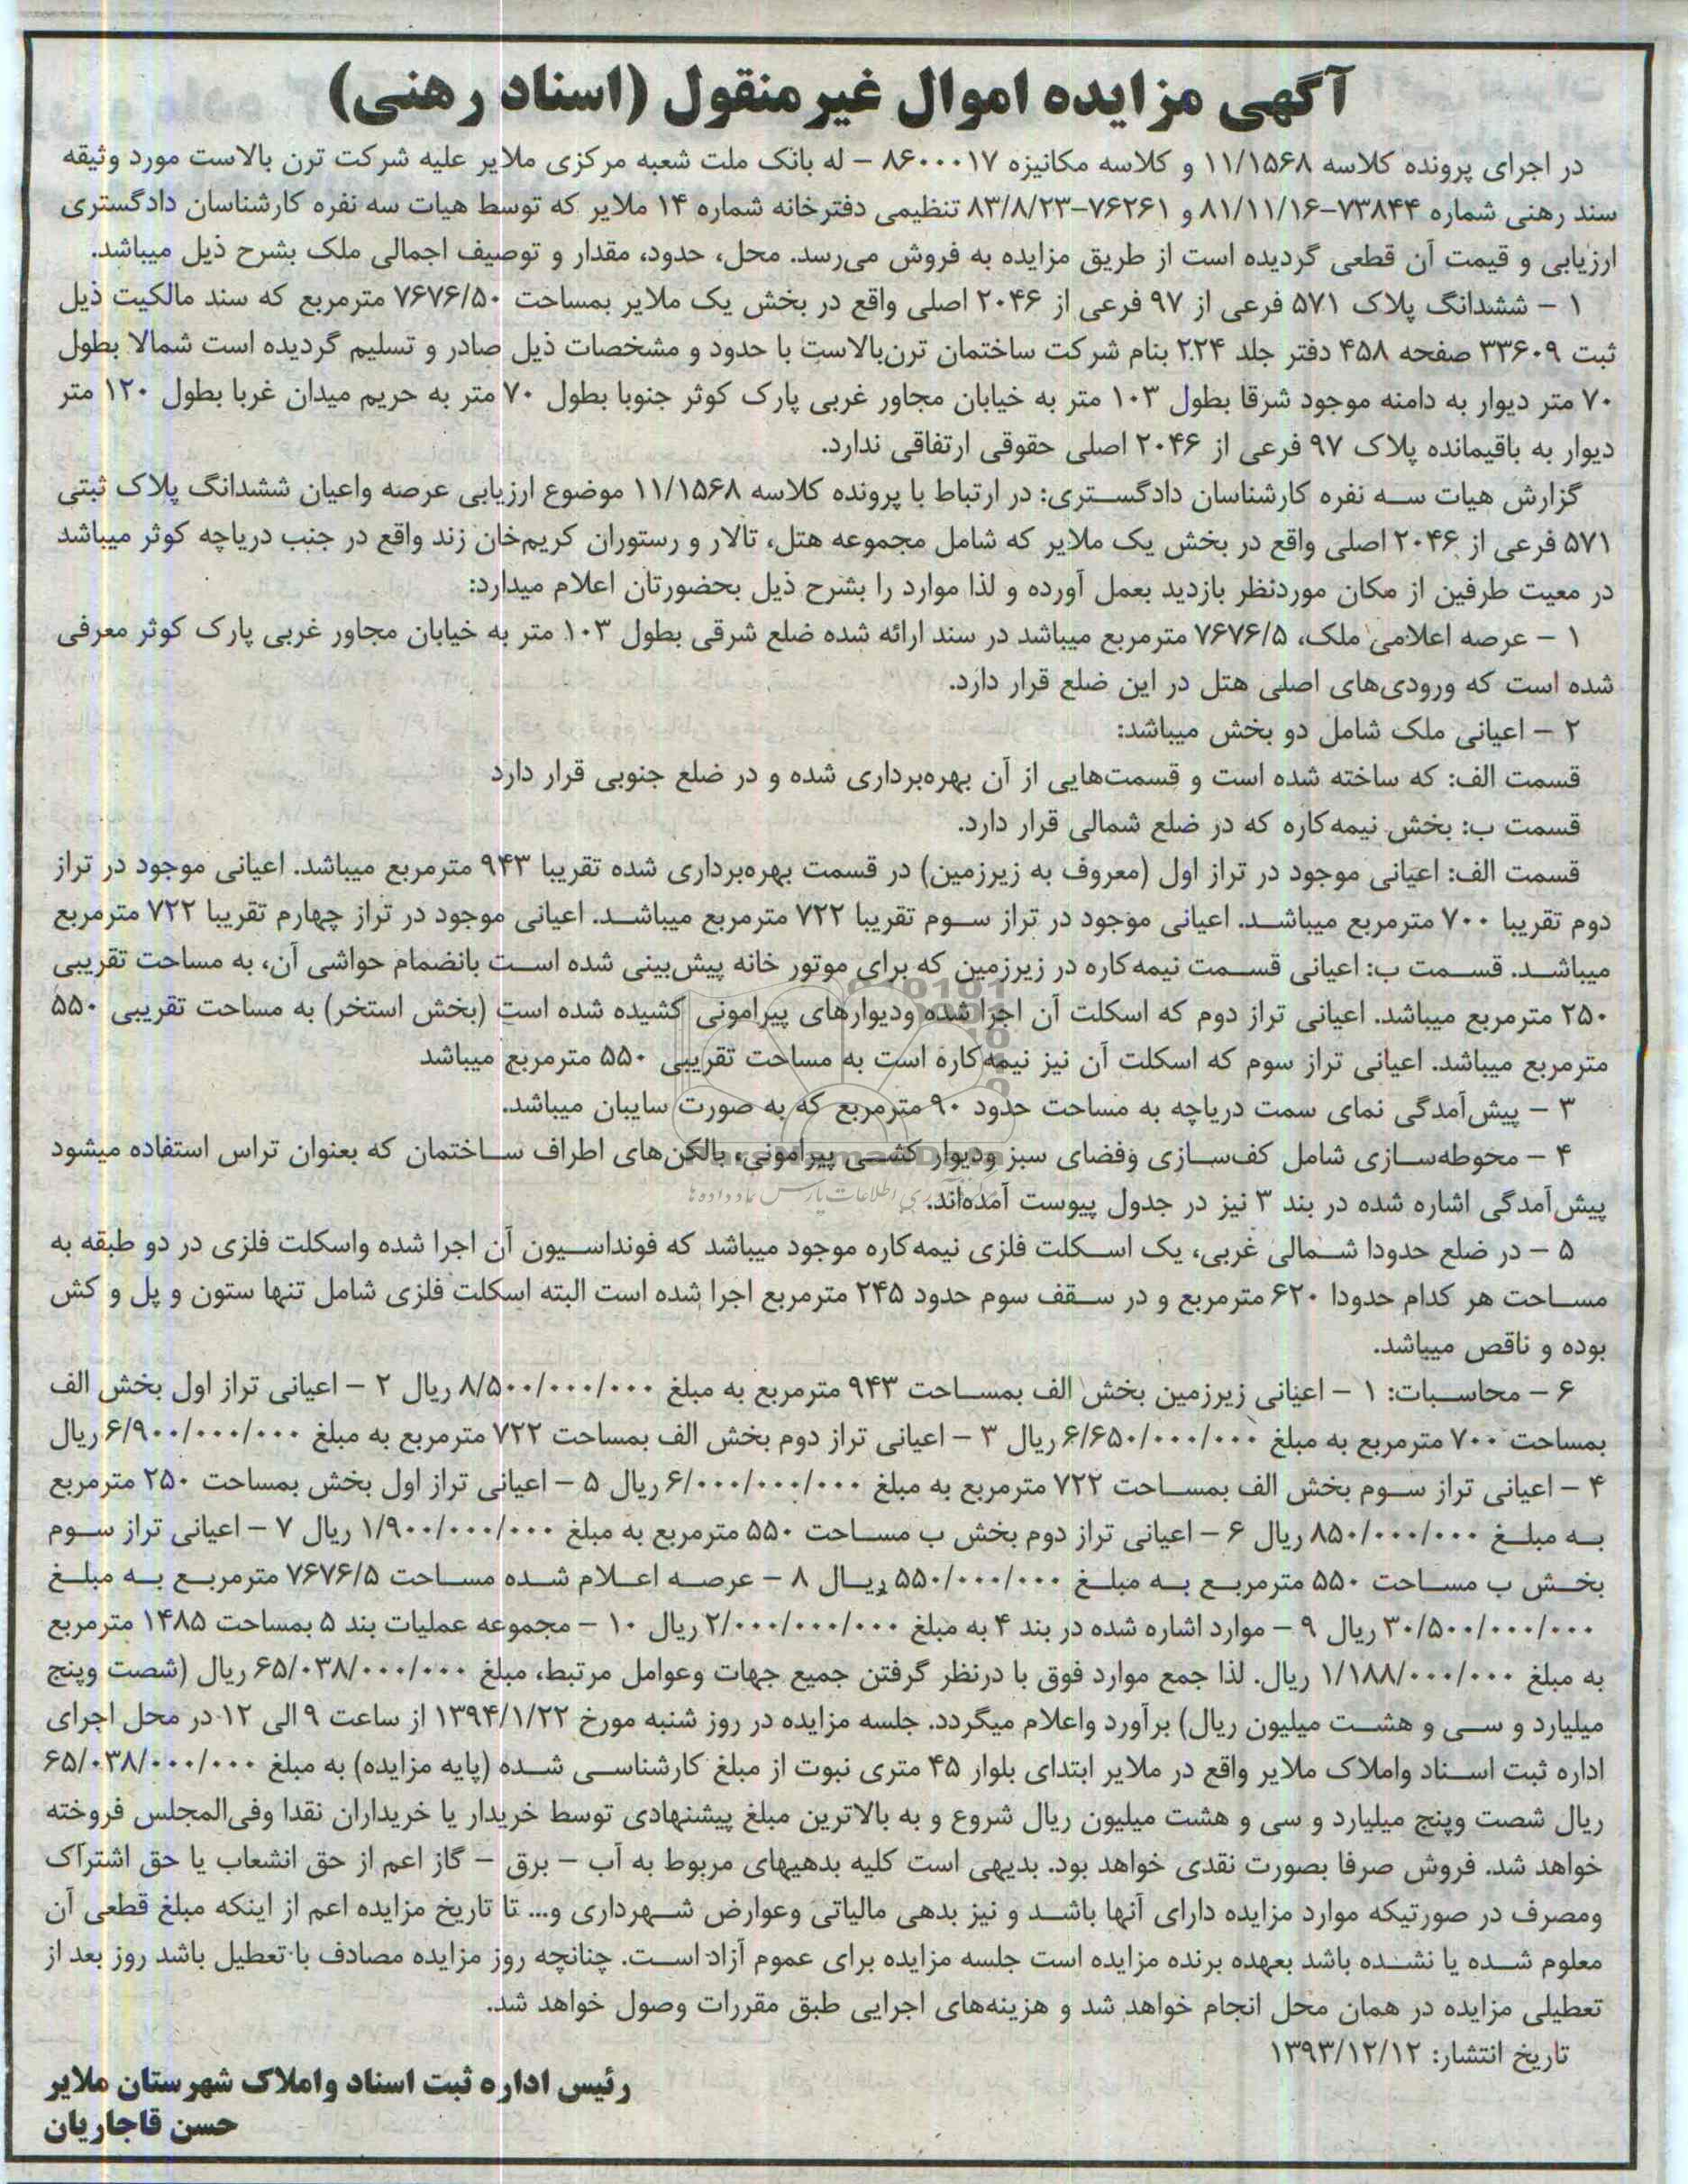 آگهی مزایده اموال غیرمنقول (اسناد رهنی)
در اجرای پرونده کلاسه ۱۱/۱۵۶۸ و کلاسه مکانیزه ۸۶۰۰۰۱۷ – له بانک ملت شعبه مرکزی ملایر علیه شرکت ترن بالاست مورد وثیقه
سند رهنی شماره ۷۳۸۴۴–۸۱/۱۱/۱۶ و ۷۶۲۶۱–۸۳/۸/۲۳ تنظیمی دفترخانه شماره ۱۴ ملایر که توسط هیات سه نفره کارشناسان دادگستری
ارزیابی و قیمت آن قطعی گردیده است از طریق مزایده به فروش می‌رسد. محل، حدود، مقدار و توصیف اجمالی ملک بشرح ذیل میباشد.
۱ – ششدانگ پلاک ۵۷۱ فرعی از ۹۷ فرعی از ۲۰۴۶ اصلی واقع در بخش یک ملایر بمساحت ۷۶۷۶/۵۰ مترمربع که سند مالکیت ذیل
ثبت ۳۳۶۰۹ صفحه ۴۵۸ دفتر جلد ۲۲۴ بنام شرکت ساختمان ترن‌بالاست با حدود و مشخصات ذیل صادر و تسلیم گردیده است شمالا بطول
۷۰ متر دیوار به دامنه موجود شرقا بطول ۱۰۳ متر به خیابان مجاور غربی پارک کوثر جنوبا بطول ۷۰ متر به حریم میدان غربا بطول ۱۲۰ متر
دیوار به باقیمانده پلاک ۹۷ فرعی از ۲۰۴۶ اصلی حقوقی ارتفاقی ندارد.
گزارش هیات سه نفره کارشناسان دادگستری: در ارتباط با پرونده کلاسه ۱۱/۱۵۶۸ موضوع ارزیابی عرصه واعیان ششدانگ پلاک ثبتی
۵۷۱ فرعی از ۲۰۴۶ اصلی واقع در بخش یک ملایر که شامل مجموعه هتل، تالار و رستوران کریم‌خان زند واقع در جنب دریاچه کوثر میباشد
در معیت طرفین از مکان موردنظر بازدید بعمل آورده و لذا موارد را بشرح ذیل بحضورتان اعلام میدارد:
۱ – عرصه اعلامی ملک، ۷۶۷۶/۵ مترمربع میباشد در سند ارائه شده ضلع شرقی بطول ۱۰۳ متر به خیابان مجاور غربی پارک کوثر معرفی
شده است که ورودی‌های اصلی هتل در این ضلع قرار دارد.
۲ – اعیانی ملک شامل دو بخش میباشد:
قسمت الف: که ساخته شده است و قسمت‌هایی از آن بهره‌برداری شده و در ضلع جنوبی قرار دارد
قسمت ب: بخش نیمه‌کاره که در ضلع شمالی قرار دارد.
قسمت الف: اعیانی موجود در تراز اول (معروف به زیرزمین) در قسمت بهره‌برداری شده تقریبا ۹۴۳ مترمربع میباشد. اعیانی موجود در تراز
دوم تقریبا ۷۰۰ مترمربع میباشد. اعیانی موجود در تراز سوم تقریبا ۷۲۲ مترمربع میباشد. اعیانی موجود در تراز چهارم تقریبا ۷۲۲ مترمربع
میباشد. قسمت ب: اعیانی قسمت نیمه‌کاره در زیرزمین که برای موتور خانه پیش‌بینی شده است بانضمام حواشی آن، به مساحت تقریبی
۲۵۰ مترمربع میباشد. اعیانی تراز دوم که اسکلت آن اجرا شده ودیوارهای پیرامونی کشیده شده است (بخش استخر) به مساحت تقریبی ۵۵۰
مترمربع میباشد. اعیانی تراز سوم که اسکلت آن نیز نیمه‌کاره است به مساحت تقریبی ۵۵۰ مترمربع میباشد
۳ – پیش‌آمدگی نمای سمت دریاچه به مساحت حدود ۹۰ مترمربع که به صورت سایبان میباشد.
۴ – محوطه‌سازی شامل کف‌سازی وفضای سبز ودیوار کشی پیرامونی، بالکن‌های اطراف ساختمان که بعنوان تراس استفاده میشود
پیش‌آمدگی اشاره شده در بند ۳ نیز در جدول پیوست آمده‌اند.
۵ – در ضلع حدودا شمالی غربی، یک اسکلت فلزی نیمه‌کاره موجود میباشد که فونداسیون آن اجرا شده واسکلت فلزی در دو طبقه به
مساحت هر کدام حدودا ۶۲۰ مترمربع و در سقف سوم حدود ۲۴۵ مترمربع اجرا شده است البته اسکلت فلزی شامل تنها ستون و پل و کش
بوده و ناقص میباشد.
۶ – محاسبات: ۱ – اعیانی زیرزمین بخش الف بمساحت ۹۴۳ مترمربع به مبلغ ۸/۵۰۰/۰۰۰/۰۰۰ ریال ۲ – اعیانی تراز اول بخش الف
بمساحت ۷۰۰ مترمربع به مبلغ ۶/۶۵۰/۰۰۰/۰۰۰ ریال ۳ – اعیانی تراز دوم بخش الف بمساحت ۷۲۲ مترمربع به مبلغ ۶/۹۰۰/۰۰۰/۰۰۰ ریال
۴ – اعیانی تراز سوم بخش الف بمساحت ۷۲۲ مترمربع به مبلغ ۶/۰۰۰/۰۰۰/۰۰۰ ریال ۵ – اعیانی تراز اول بخش بمساحت ۲۵۰ مترمربع
به مبلغ ۸۵۰/۰۰۰/۰۰۰ ریال ۶ – اعیانی تراز دوم بخش ب مساحت ۵۵۰ مترمربع به مبلغ ۱/۹۰۰/۰۰۰/۰۰۰ ریال ۷ – اعیانی تراز سوم
بخش ب مساحت ۵۵۰ مترمربع به مبلغ ۵۵۰/۰۰۰/۰۰۰ ریال ۸ – عرصه اعلام شده مساحت ۷۶۷۶/۵ مترمربع به مبلغ
۳۰/۵۰۰/۰۰۰/۰۰۰ ریال ۹ – موارد اشاره شده در بند ۴ به مبلغ ۲/۰۰۰/۰۰۰/۰۰۰ ریال ۱۰ – مجموعه عملیات بند ۵ بمساحت ۱۴۸۵ مترمربع
به مبلغ ۱/۱۸۸/۰۰۰/۰۰۰ ریال. لذا جمع موارد فوق با درنظر گرفتن جمیع جهات وعوامل مرتبط، مبلغ ۶۵/۰۳۸/۰۰۰/۰۰۰ ریال (شصت وپنج
میلیارد و سی و هشت میلیون ریال) برآورد واعلام میگردد. جلسه مزایده در روز شنبه مورخ ۱۳۹۴/۱/۲۲ از ساعت ۹ الی ۱۲ در محل اجرای
اداره ثبت اسناد واملاک ملایر واقع در ملایر ابتدای بلوار ۴۵ متری نبوت از مبلغ کارشناسی شده (پایه مزایده) به مبلغ ۶۵/۰۳۸/۰۰۰/۰۰۰
ریال شصت وپنج میلیارد و سی و هشت میلیون ریال شروع و به بالاترین مبلغ پیشنهادی توسط خریدار یا خریداران نقدا وفی‌المجلس فروخته
خواهد شد. فروش صرفا بصورت نقدی خواهد بود. بدیهی است کلیه بدهیهای مربوط به آب – برق – گاز اعم از حق انشعاب یا حق اشتراک
ومصرف در صورتیکه موارد مزایده دارای آنها باشد و نیز بدهی مالیاتی وعوارض شهرداری و... تا تاریخ مزایده اعم از اینکه مبلغ قطعی آن
معلوم شده یا نشده باشد بعهده برنده مزایده است جلسه مزایده برای عموم آزاد است. چنانچه روز مزایده مصادف با تعطیل باشد روز بعد از
تعطیلی مزایده در همان محل انجام خواهد شد و هزینه‌های اجرایی طبق مقررات وصول خواهد شد.
تاریخ انتشار: ۱۳۹۳/۱۲/۱۲
رئیس اداره ثبت اسناد واملاک شهرستان ملایر
حسن قاجاریان